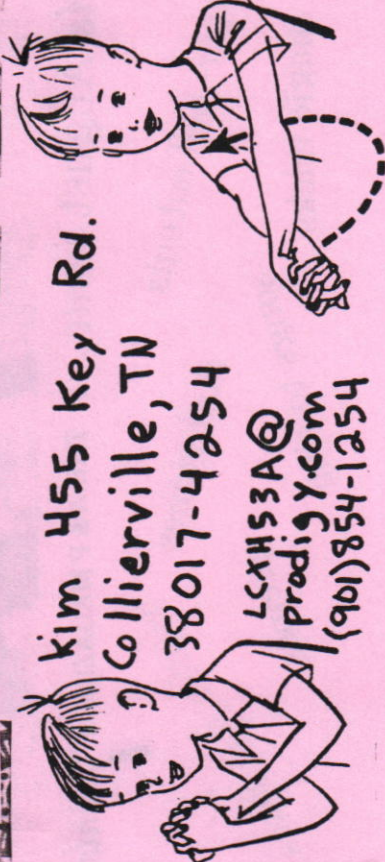 Kim 455 Key Rd.
Collierville, TN
38017-4254
LCXH53A@
prodigy.com
(901)854-1254